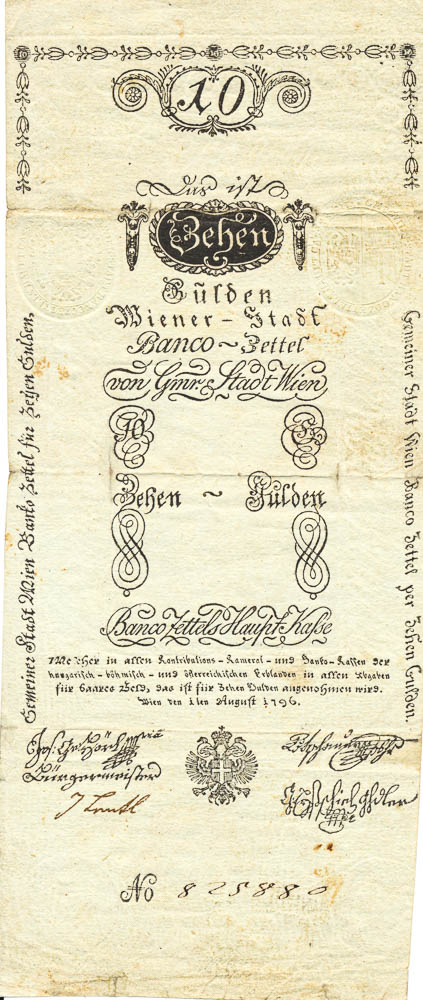 10
Das ist
Zehen
Gülden
Wiener - Stadt
Banco ~ Zettel
von Gmr. Stadt Wien
10
Zehen ~ Gulden
Banco Zettels Haupt Kasse
Welcher in allen Kontributions - Kameral - und Banko - Kassen der
hungarisch - böhmisch - und österreichischen Erblanden in allen Abgaben
für baares Geld, das ist für Zehen Gulden angenohmen wird.
Wien den 1ten August 1796.
Bürgermeister
No 825880
Gemeiner Stadt Wien Banko Zettel für Zehen Gulden,
Gemeiner Stadt Wien Banco Zettel per Zehen Gulden.